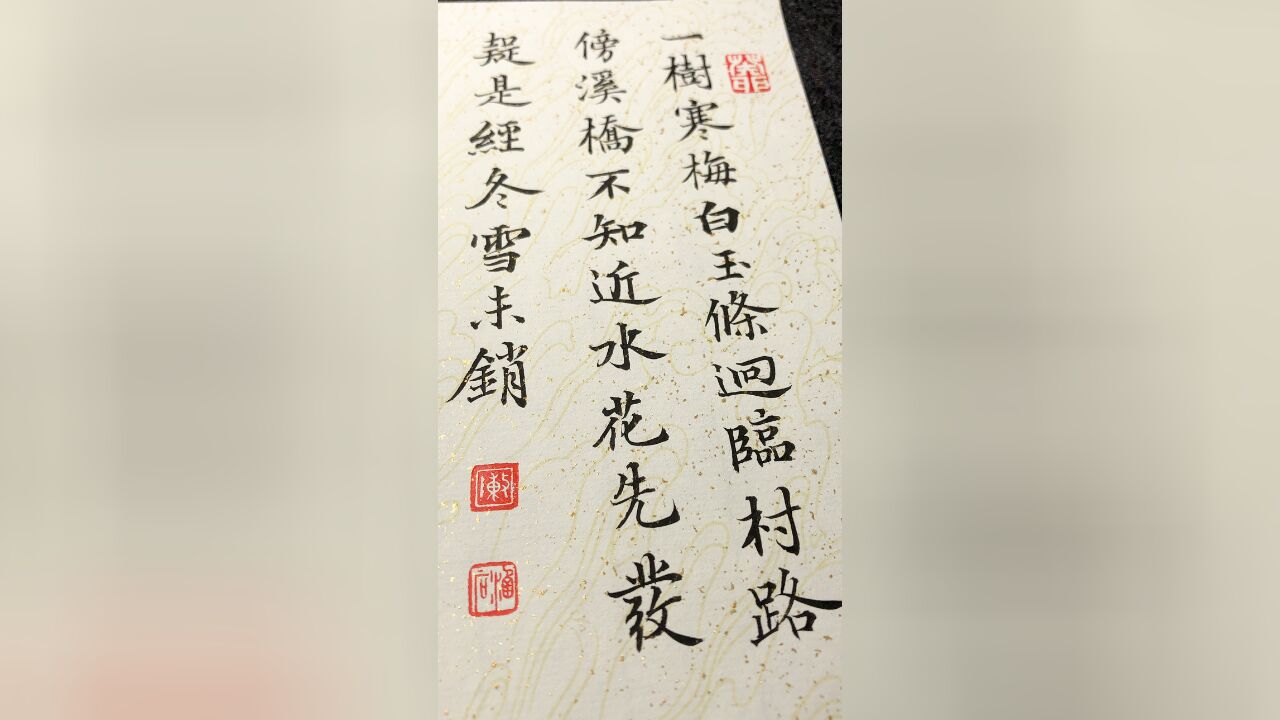 一樹寒梅白玉條迥臨村路
傍溪橋不知近水花先發
疑是經冬雪未銷